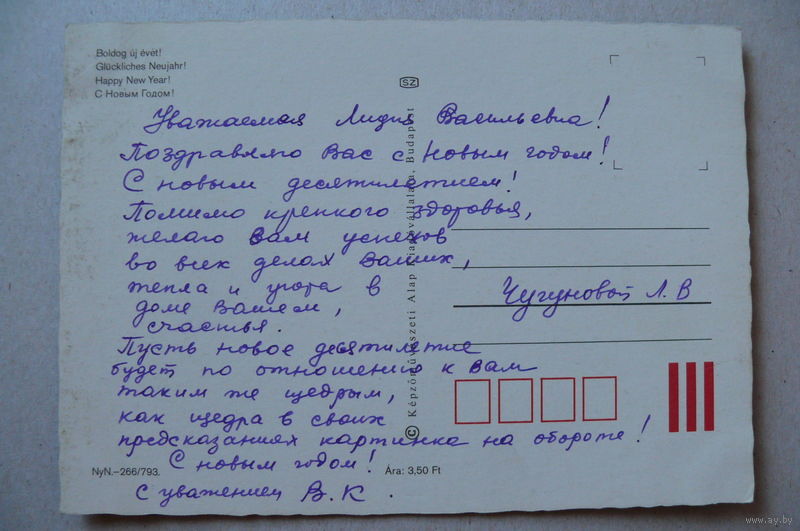 Boldog új évet!
Glückliches Neujahr!
Happy New Year!
С Новым Годом!
SZ
Уважаемая Лидия Васильевна!
Поздравляю Вас с новым годом!
С новым десятилетием!
Помимо крепкого здоровья,
желаю Вам успехов
во всех делах Ваших,
тепла и уюта в
доме Вашем,
счастья.
Пусть новое десятилетие
будет по отношению к Вам
таким же щедрым,
как щедра в своих
предсказаниях картинка на обороте!
С новым годом!
С уважением В. К.
Чугуновой Л. В
© Képzőművészeti Alap Kiadóvállalata, Budapest
NyN.–266/793.
Ára: 3,50 Ft
www.ay.by